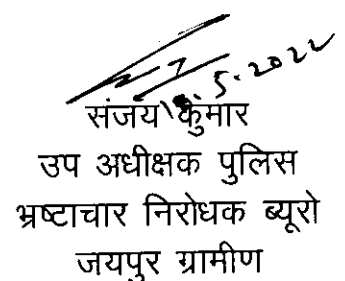 5.2022
संजय कुमार
उप अधीक्षक पुलिस
भ्रष्टाचार निरोधक ब्यूरो
जयपुर ग्रामीण